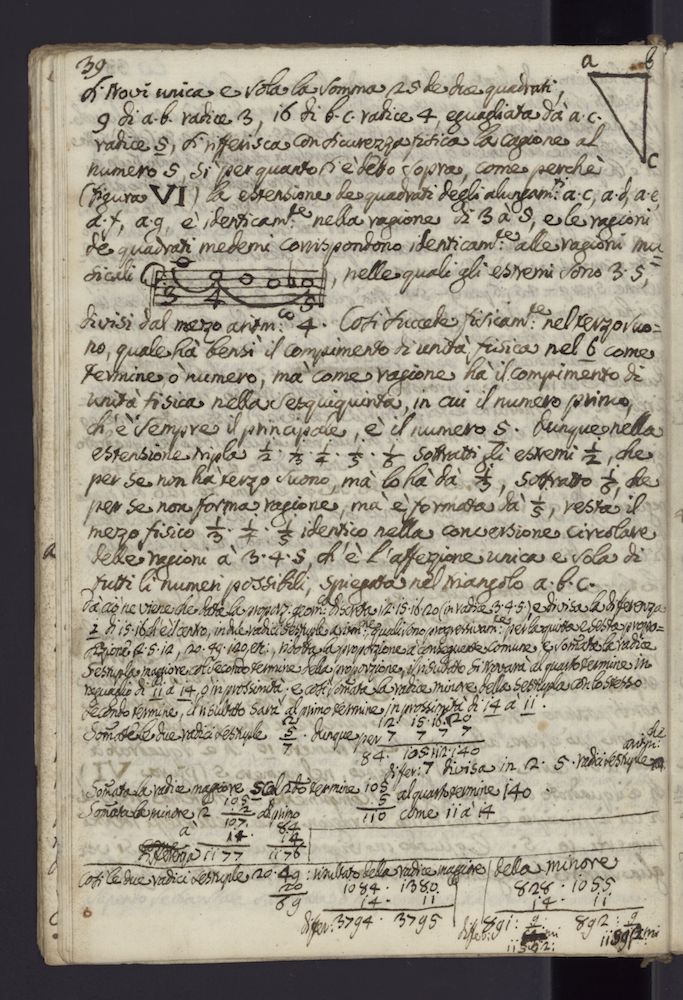 39
a b
si trovi unica e sola la somma 25 de due quadrati,
9 di a.b. radice 3, 16 di b.c. radice 4, eguagliata dà a.c.
c
radice 5, si riferisca con sicurezza fisica la cagione al
numero 5, sì per quanto si è detto sopra, come perchè
(figura VI) la estensione de quadrati degli alungam.ti a.c, a.d, a.e,
a.f, a.g, è identicam.te nella ragione di 3 a 5, e le ragioni
de quadrati medemi corrispondono identicam.te alle ragioni mu=
sicali
3 4 5
, nelle quali gli estremi sono 3.5,
divisi dal mezo aritm:co 4. Così succede fisicam:te nel terzo suo=
no, quale hà bensì il compimento di unità fisica nel 6 come
termine ò numero, mà come ragione hà il compimento di
unità fisica nella sesquiquinta, in cui il numero primo,
ch'è sempre il principale, è il numero 5. Dunque nella
estensione tripla 1/2. 1/3. 1/4. 1/5. 1/6 sottratti gli estremi 1/2, che
per se non hà terzo suono, mà lo hà dà 1/3, sottratto 1/6, che
per se non forma ragione, mà è formata dà 1/5, resta il
mezo fisico 1/3. 1/4. 1/5 identico nella conversione circolare
delle ragioni à 3.4.5, ch'è l'affezione unica e sola di
tutti li numeri possibili, spiegata nel triangolo a.b.c.
Da ciò ne viene che data la proporz. geom: discreta 12.15.16.20 (in radice 3.4.5) e divisa la differenza
di 15.16 ch'è il centro, in due radici sestuple
2.5.12, 20.49.120, ridotta la proporzione a conseguente comune, e somata la radice
sestupla magiore col secondo termine della proporzione, il risultato si trovarà al quarto termine in
raguaglio di 11 a 14, in prossimità. e così somata la radice minore della sestupla con lo stesso
secondo termine, il risultato sarà al primo termine in prossimità di 14 a 11.
Somate le due radici sestuple 2 5 7 . Dunque per 12. 15. 16. 20
7 7 7 7
84. 105. 112. 140
differ: 7 divisa in 2. 5. radici sestuple aritm:che
Somata la radice magiore 5 col 2do termine 105 al quarto termine 140
5
110 come 11 à 14
Somata la minore 2 105 2 107. al primo
à 14. 84 14
1177 1176
Così le due radici sestuple 20.49: risultato della radice magiore della minore
20 1084. 1380 828. 1055
69 14. 11 14. 11
differ: 3794. 3795